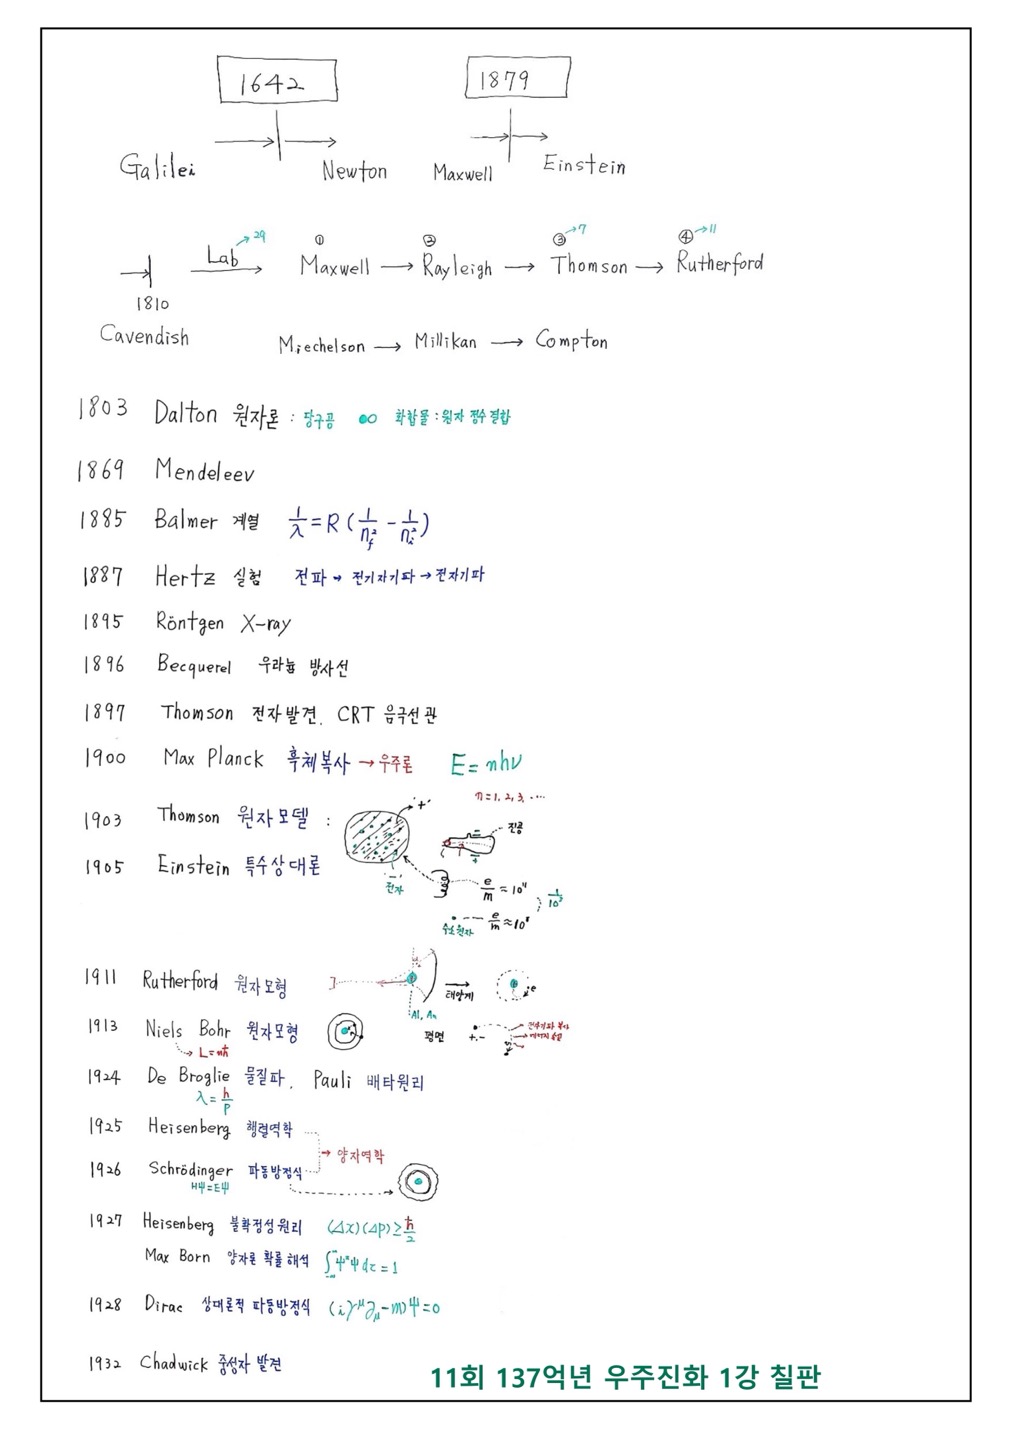 1642 1879
Galilei Newton Maxwell Einstein
Lab 29 ① Maxwell → ② Rayleigh → ③ 7 Thomson → ④ 11 Rutherford
1810
Cavendish
Miechelson → Millikan → Compton
1803 Dalton 원자론 : 당구공 화합물 : 원자 정수 결합
1869 Mendeleev
1885 Balmer 계열 1/λ = R ( 1/n_f² - 1/n_i² )
1887 Hertz 실험 전파 → 전기자기파 → 전자기파
1895 Röntgen X-ray
1896 Becquerel 우라늄 방사선
1897 Thomson 전자발견. CRT 음극선관
1900 Max Planck 흑체복사 → 우주론 E = nhν
n = 1, 2, 3, ....
1903 Thomson 원자모델 : '+' 진공
1905 Einstein 특수상대론
'-' 전자 e/m ≈ 10¹¹
수소원자 e/m ≈ 10⁸ 1/10³
1911 Rutherford 원자모형 태양계 e
Al, Au
1913 Niels Bohr 원자모형 평면 +.-
L = nħ
1924 De Broglie 물질파. Pauli 배타원리
λ = h/p
1925 Heisenberg 행렬역학
→ 양자역학
1926 Schrödinger 파동방정식
HΨ=EΨ
1927 Heisenberg 불확정성원리 (Δx)(Δp) ≥ ħ/2
Max Born 양자론 확률 해석 ∫Ψ*Ψ dτ = 1
1928 Dirac 상대론적 파동방정식 (iγ^μ ∂_μ - m)Ψ = 0
1932 Chadwick 중성자 발견
11회 137억년 우주진화 1강 칠판